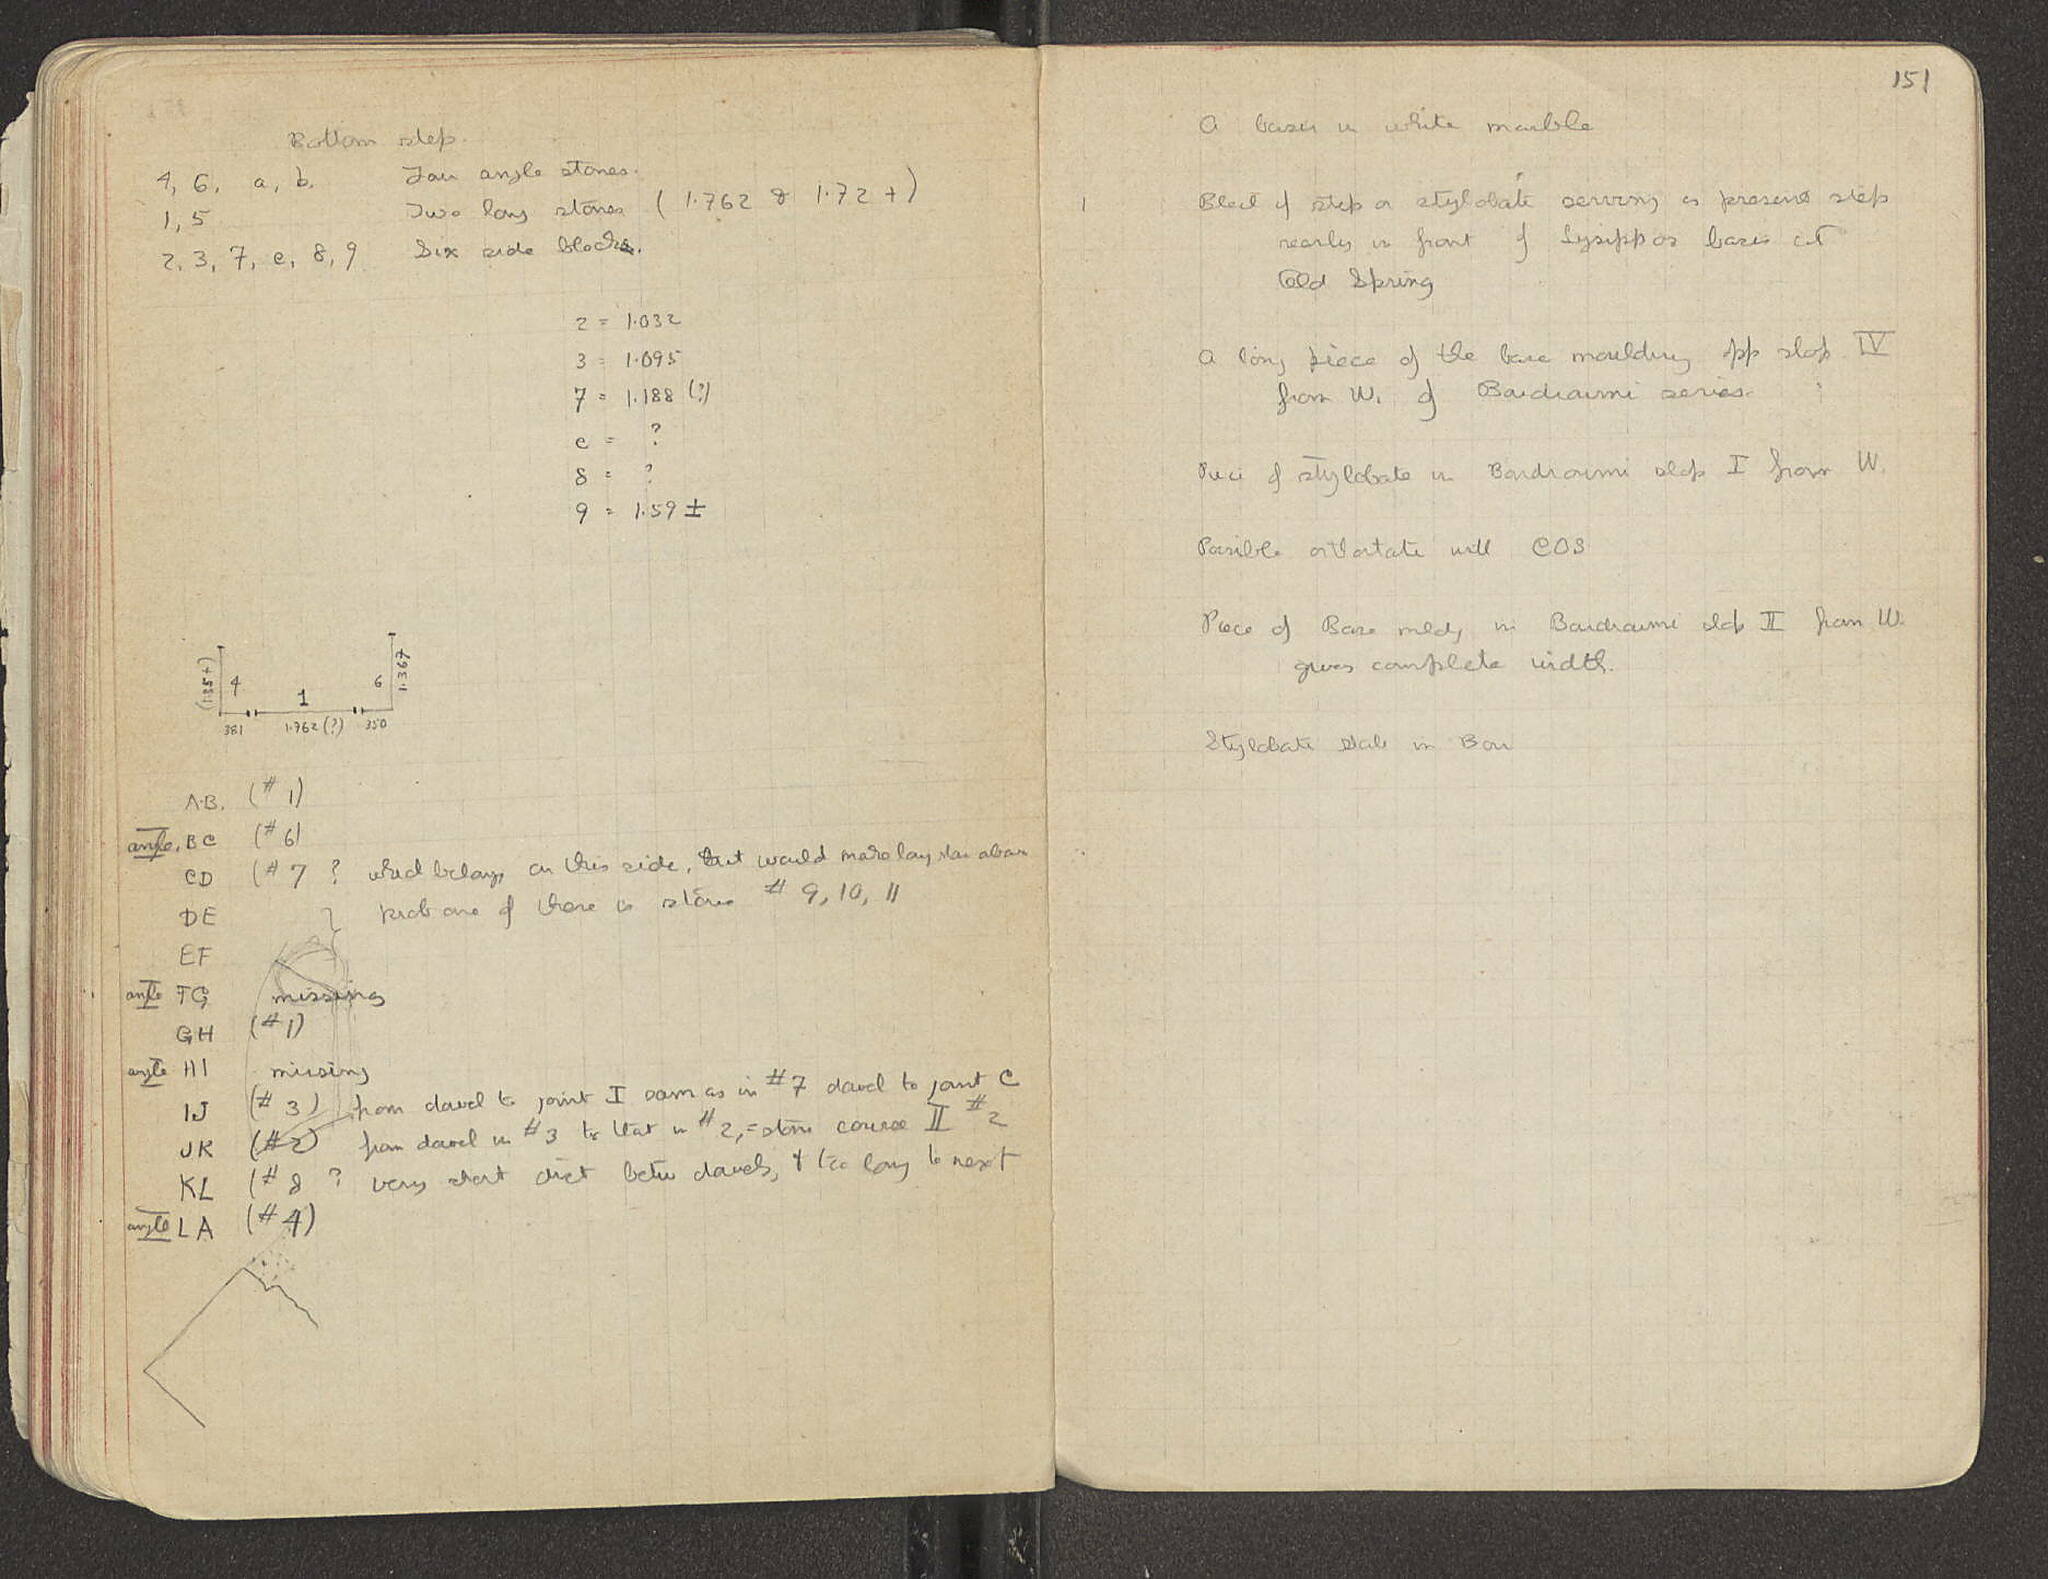 Bottom step.
4, 6, a, b. Four angle stones.
1, 5 Two long stones (1.762 & 1.72 +)
2, 3, 7, c, 8, 9 Six side blocks.
2 = 1.032
3 = 1.095
7 = 1.188 (?)
c = ?
8 = ?
9 = 1.59 ±
(1.35+) 4 1 6 1.367
381 1.762 (?) 350
A.B. (# 1)
angle. BC (# 6)
CD (# 7 ? which belongs on this side, but would make long
DE } prob one of these is stone # 9, 10, 11
EF
angle FG missing
GH (# 1)
angle HI missing
IJ (# 3) from dowel to joint I same as in # 7 dowel to joint C
JK (# 2) from dowel in # 3 to that in # 2, = stone course II # 2
KL (# 8 ? very short dist betw dowels, & too long to next
angle LA (# 4)
151
A basis in white marble
1 Block of step or stylobate serving as present step
nearly in front of Lysippos basis at
Old Spring
A long piece of the base moulding opp shop IV
from W. of Boudroumi series.
Piece of stylobate in Boudroumi shop I from W.
Possible orthostate with COS
Piece of Base mldg in Boudroumi shop II from W.
gives complete width.
Stylobate slab in Bou